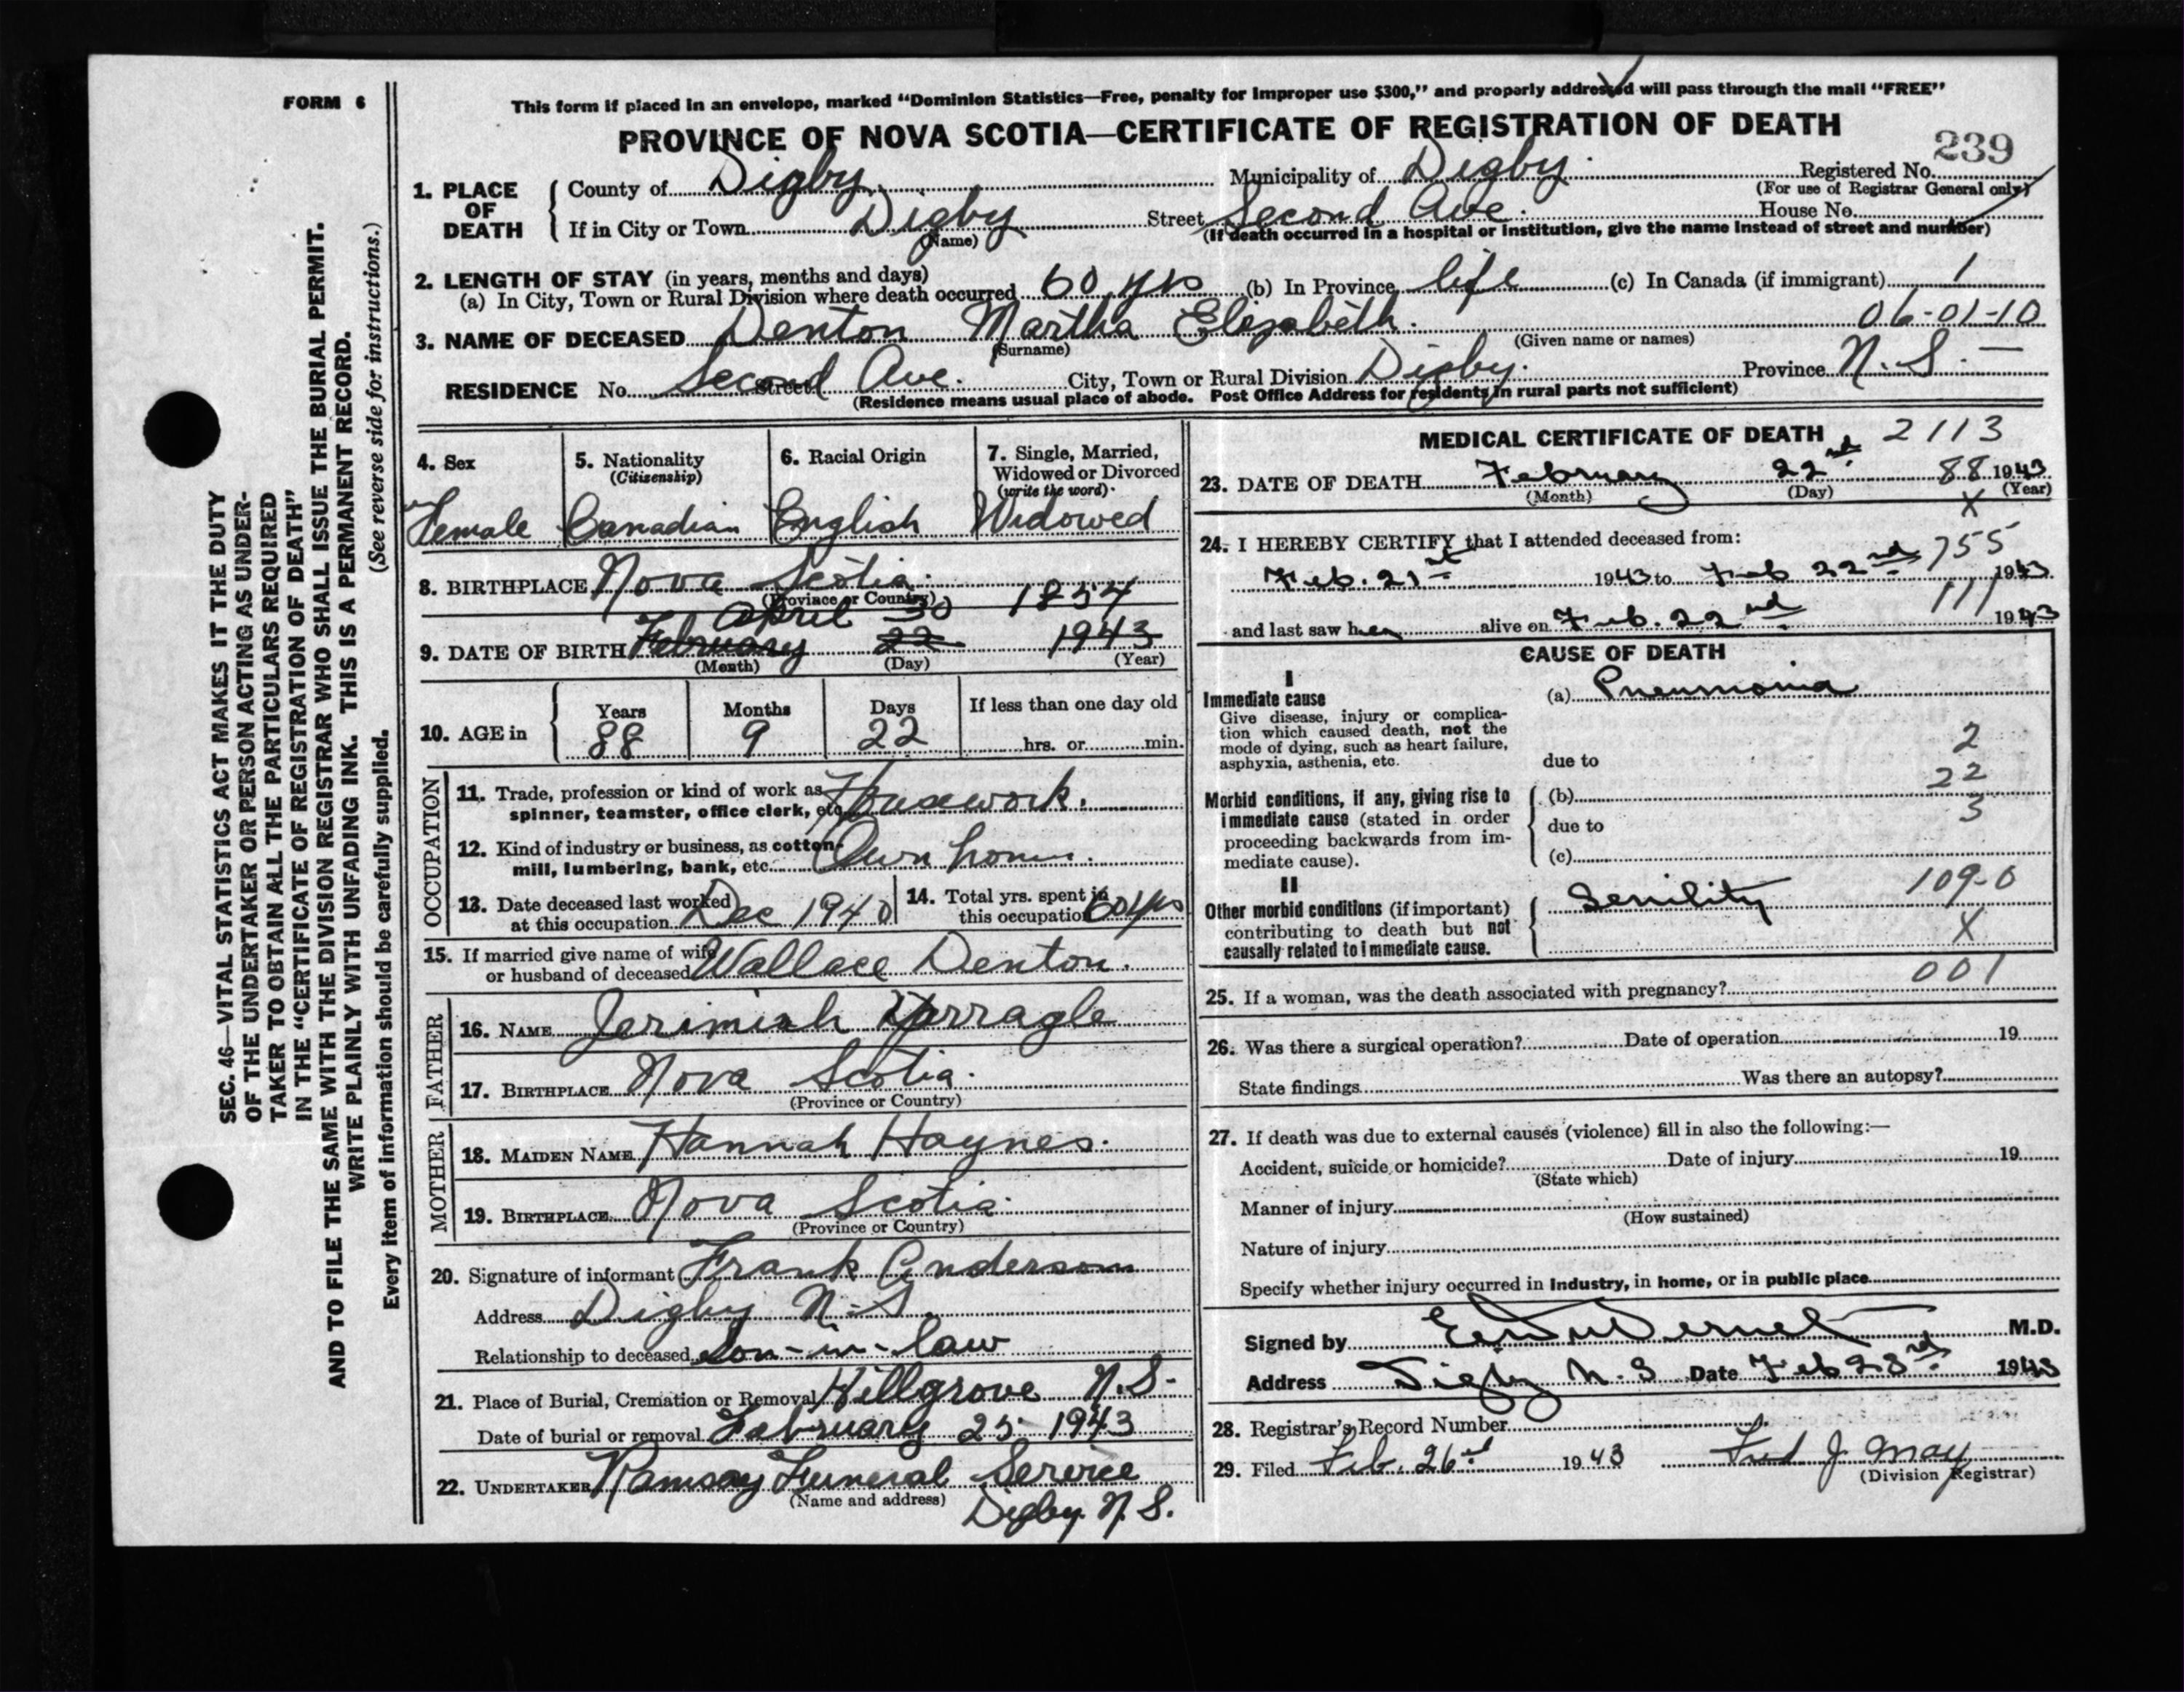 FORM 6
This form if placed in an envelope, marked “Dominion Statistics—Free, penalty for improper use $300,” and properly addressed will pass through the mail “FREE”
PROVINCE OF NOVA SCOTIA—CERTIFICATE OF REGISTRATION OF DEATH
239
1. PLACE OF DEATH
County of Digby Municipality of Digby Registered No.
(For use of Registrar General only)
If in City or Town Digby Street Second Ave. House No.
(Name) (If death occurred in a hospital or institution, give the name instead of street and number)
2. LENGTH OF STAY (in years, months and days)
(a) In City, Town or Rural Division where death occurred 60 yrs (b) In Province life (c) In Canada (if immigrant) 1
3. NAME OF DECEASED Denton Martha Elizabeth. 06-01-10
(Surname) (Given name or names)
RESIDENCE No. Second Ave. Street City, Town or Rural Division Digby. Province N.S. —
(Residence means usual place of abode. Post Office Address for residents in rural parts not sufficient)
4. Sex
Female
5. Nationality
(Citizenship)
Canadian
6. Racial Origin
English
7. Single, Married,
Widowed or Divorced
(write the word)
Widowed
8. BIRTHPLACE Nova Scotia.
(Province or Country)
April 30 1854
9. DATE OF BIRTH February 22 1943
(Month) (Day) (Year)
10. AGE in
Years Months Days If less than one day old
88 9 22 hrs. or min.
OCCUPATION
11. Trade, profession or kind of work as
spinner, teamster, office clerk, etc. Housework.
12. Kind of industry or business, as cotton-
mill, lumbering, bank, etc. Own home.
13. Date deceased last worked
at this occupation Dec 1940
14. Total yrs. spent in
this occupation 60 yrs
15. If married give name of wife
or husband of deceased Wallace Denton.
FATHER
16. NAME Jerimiah
17. BIRTHPLACE Nova Scotia.
(Province or Country)
MOTHER
18. MAIDEN NAME Hannah Haynes.
19. BIRTHPLACE Nova Scotia.
(Province or Country)
20. Signature of informant Frank Anderson
Address Digby N.S.
Relationship to deceased son-in-law
21. Place of Burial, Cremation or Removal Hillgrove N.S.
Date of burial or removal February 25 1943
22. UNDERTAKER Ramsay Funeral Service
(Name and address) Digby. N.S.
MEDICAL CERTIFICATE OF DEATH 2113
23. DATE OF DEATH February 22nd 88 1943
(Month) (Day) (Year)
X
24. I HEREBY CERTIFY that I attended deceased from:
755
Feb. 21st 1943 to Feb 22nd 1943
111
and last saw her alive on Feb. 22nd 1943
CAUSE OF DEATH
I
Immediate cause (a) Pneumonia
Give disease, injury or complica-
tion which caused death, not the
mode of dying, such as heart failure,
asphyxia, asthenia, etc. due to
2
22
3
Morbid conditions, if any, giving rise to (b)
immediate cause (stated in order due to
proceeding backwards from im-
mediate cause). (c)
II
Other morbid conditions (if important) Senility 109-0
contributing to death but not
causally related to immediate cause. X
001
25. If a woman, was the death associated with pregnancy?
26. Was there a surgical operation? Date of operation 19
State findings Was there an autopsy?
27. If death was due to external causes (violence) fill in also the following:—
Accident, suicide or homicide? Date of injury 19
(State which)
Manner of injury
(How sustained)
Nature of injury
Specify whether injury occurred in industry, in home, or in public place
Signed by M.D.
Address Digby N.S Date Feb 23rd 1943
28. Registrar's Record Number
29. Filed Feb. 26 1943 Fred J. May
(Division Registrar)
SEC. 46—VITAL STATISTICS ACT MAKES IT THE DUTY
OF THE UNDERTAKER OR PERSON ACTING AS UNDER-
TAKER TO OBTAIN ALL THE PARTICULARS REQUIRED
IN THE “CERTIFICATE OF REGISTRATION OF DEATH”
AND TO FILE THE SAME WITH THE DIVISION REGISTRAR WHO SHALL ISSUE THE BURIAL PERMIT.
WRITE PLAINLY WITH UNFADING INK. THIS IS A PERMANENT RECORD.
(See reverse side for instructions.)
Every item of information should be carefully supplied.